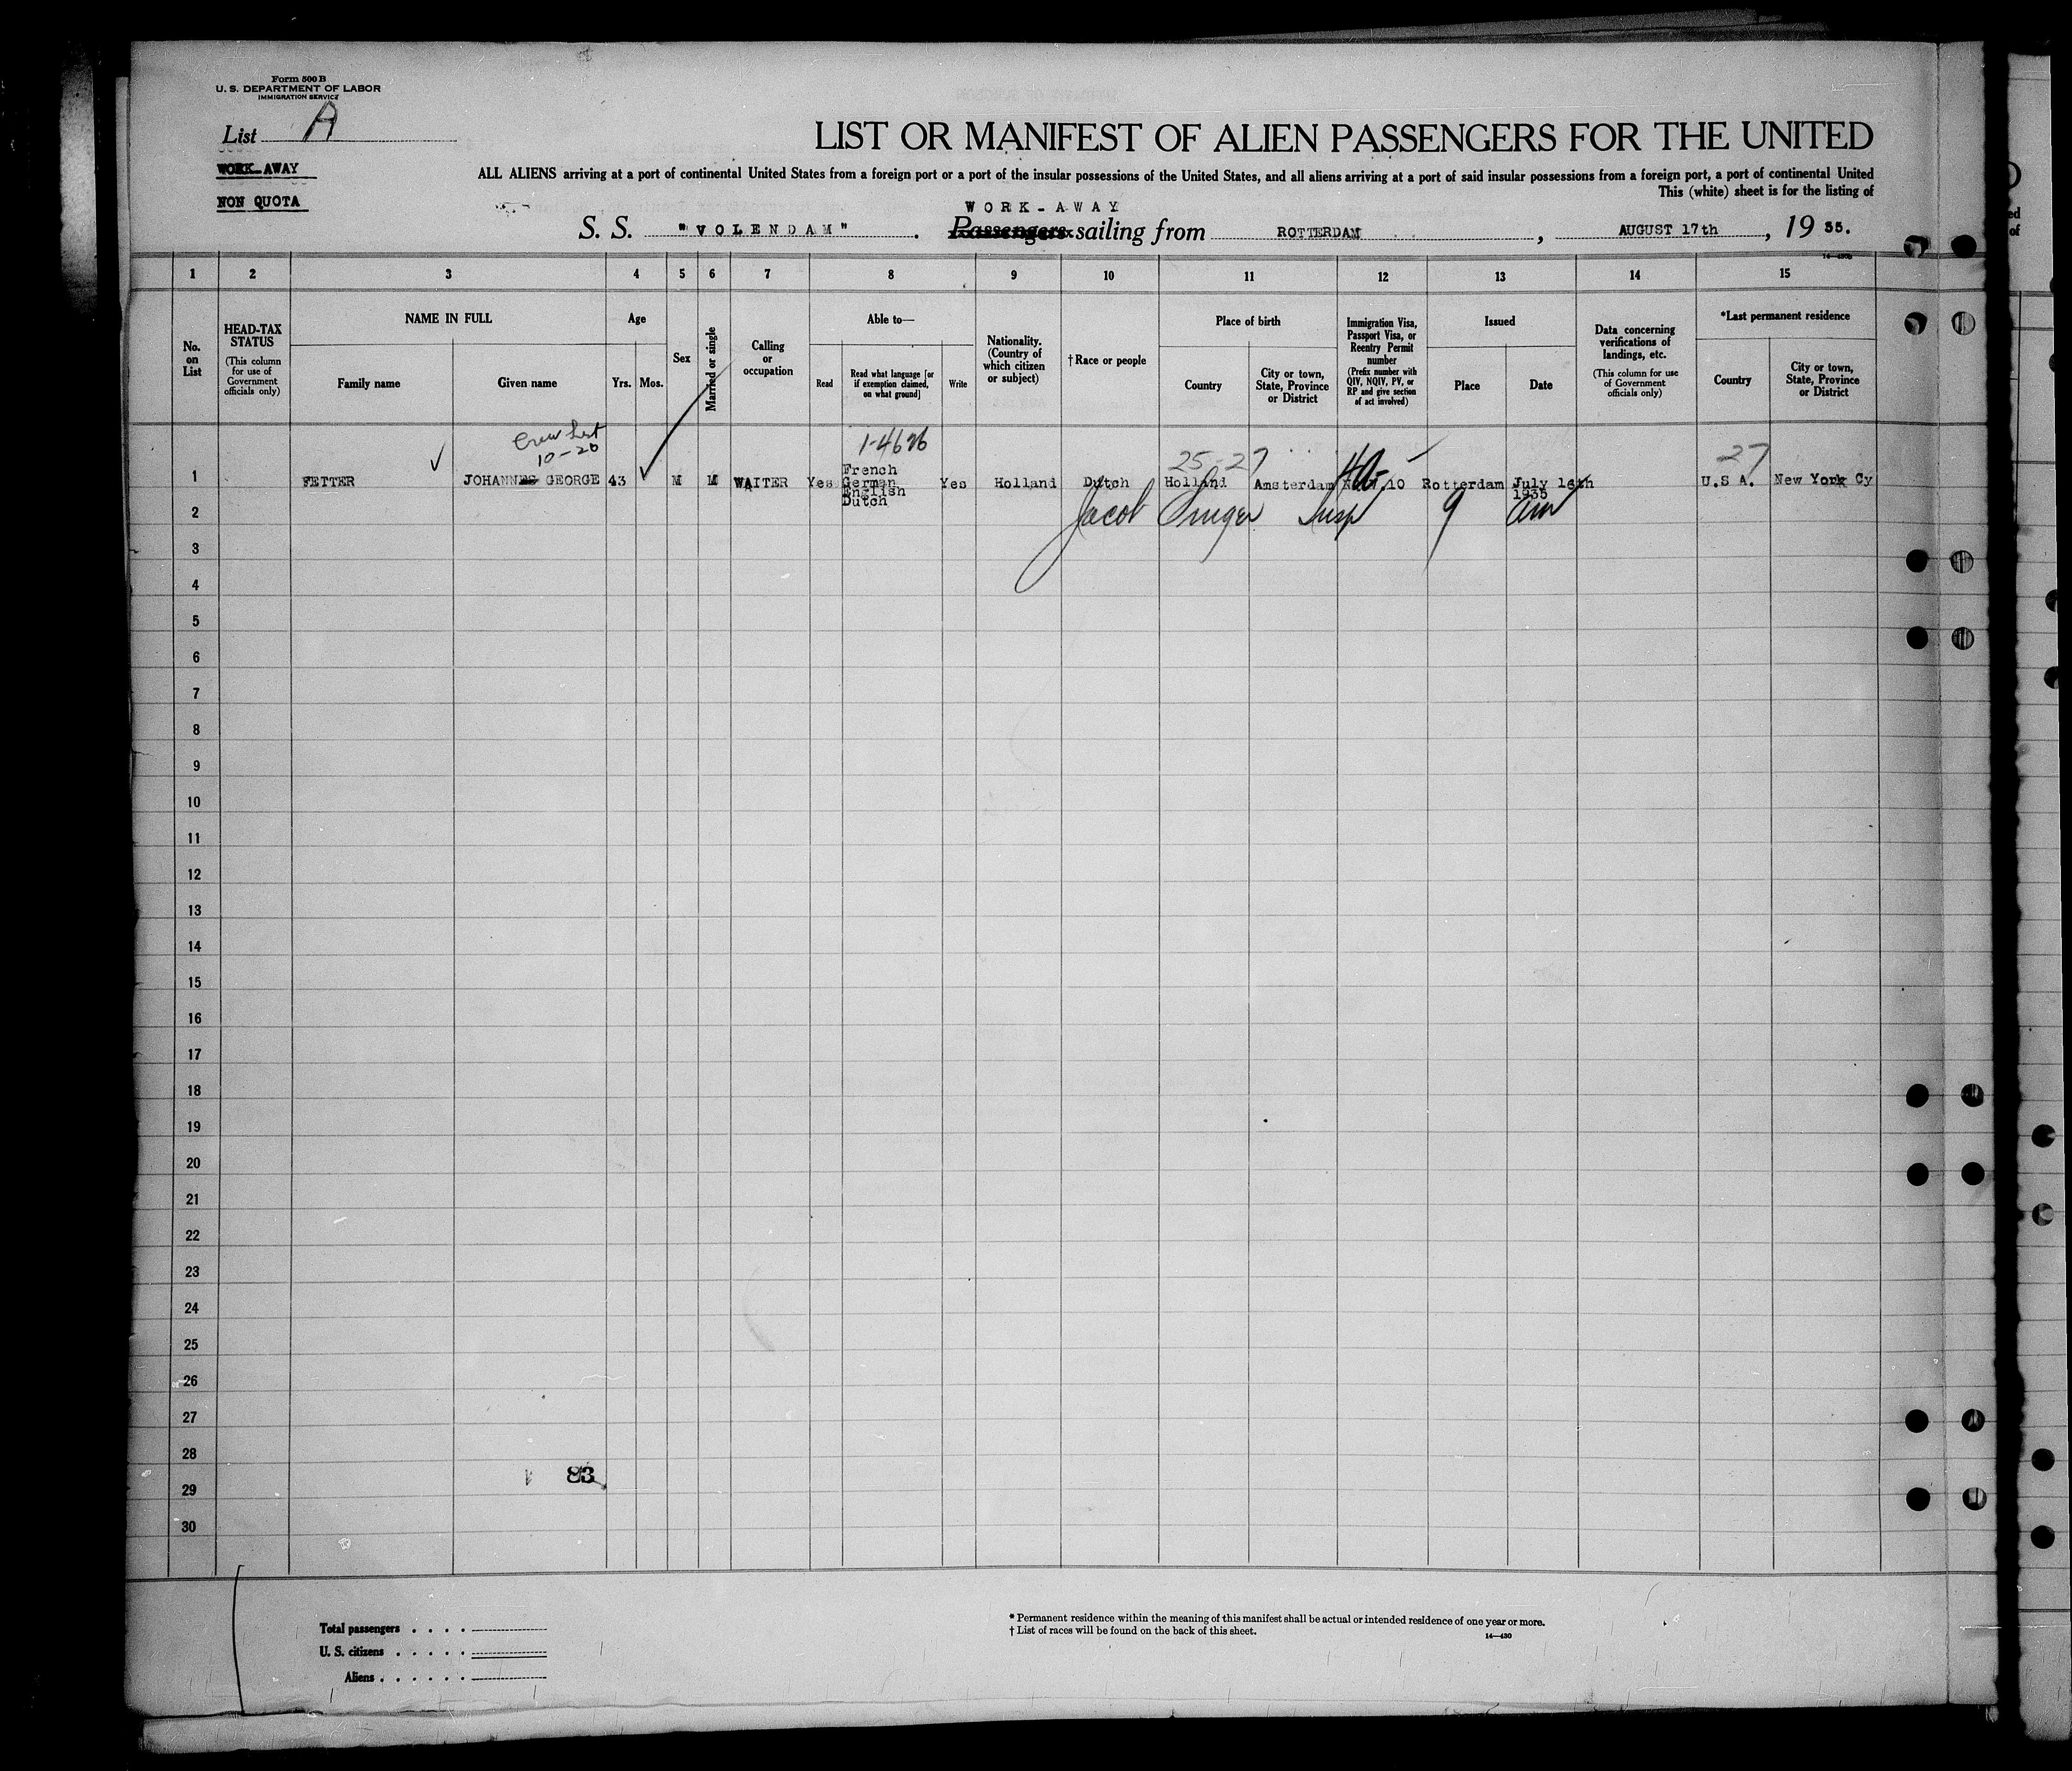 Form 500 B
U. S. DEPARTMENT OF LABOR
IMMIGRATION SERVICE
List A
WORK-AWAY
NON QUOTA
LIST OR MANIFEST OF ALIEN PASSENGERS FOR THE UNITED
ALL ALIENS arriving at a port of continental United States from a foreign port or a port of the insular possessions of the United States, and all aliens arriving at a port of said insular possessions from a foreign port, a port of continental United
This (white) sheet is for the listing of
WORK-AWAY
S. S. "VOLENDAM". Passengers sailing from ROTTERDAM, AUGUST 17th, 19 35.
1 2 3 4 5 6 7 8 9 10 11 12 13 14 15
No. on List
HEAD-TAX STATUS
(This column for use of Government officials only)
NAME IN FULL
Family name
Given name
Age
Yrs. Mos.
Sex
Married or single
Calling or occupation
Able to—
Read
Read what language [or if exemption claimed, on what ground]
Write
Nationality. (Country of which citizen or subject)
†Race or people
Place of birth
Country
City or town, State, Province or District
Immigration Visa, Passport Visa, or Reentry Permit number
(Prefix number with QIV, NQIV, PV, or RP and give section of act involved)
Issued
Place
Date
Data concerning verifications of landings, etc.
(This column for use of Government officials only)
*Last permanent residence
Country
City or town, State, Province or District
Crew List
10-20
25-27
27
1 FETTER JOHANNES GEORGE 43 M M WAITER Yes French German English Dutch Yes Holland Dutch Holland Amsterdam 10 Rotterdam July 16th 1935 U.S A. New York Cy
Jacob Insp 9
2
3
4
5
6
7
8
9
10
11
12
13
14
15
16
17
18
19
20
21
22
23
24
25
26
27
28
83
29
30
Total passengers
U. S. citizens
Aliens
* Permanent residence within the meaning of this manifest shall be actual or intended residence of one year or more.
† List of races will be found on the back of this sheet.
14—430